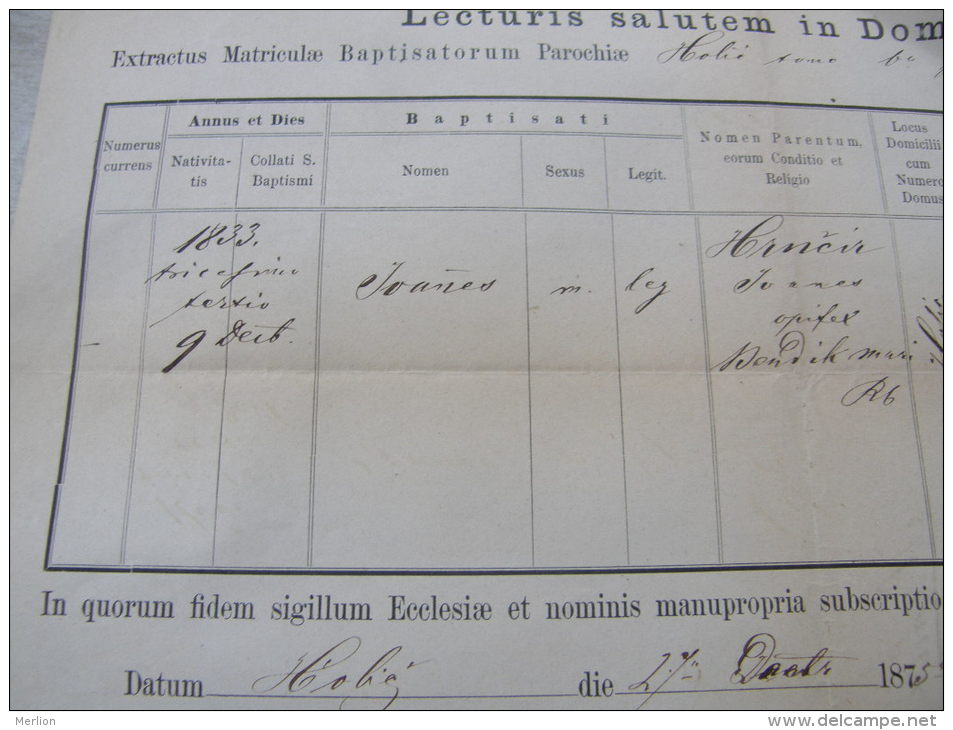 Lecturis salutem in Dom
Extractus Matriculæ Baptisatorum Parochiæ Holič tomo
Numerus currens
Annus et Dies
Nativita-
tis
Collati S.
Baptismi
Baptisati
Nomen
Sexus
Legit.
Nomen Parentum,
eorum Conditio et
Religio
Locus
Domicilii
cum
Numero
Domus
1833.
tricesimo
tertio
9 Decb.
Joañes
m.
leg
Hrnčir
Joanes
opifex
Bendik mari
Rk
In quorum fidem sigillum Ecclesiæ et nominis manupropria subscriptio
Datum Holič die 27 1875
Merlion
http://www.delcampe.net